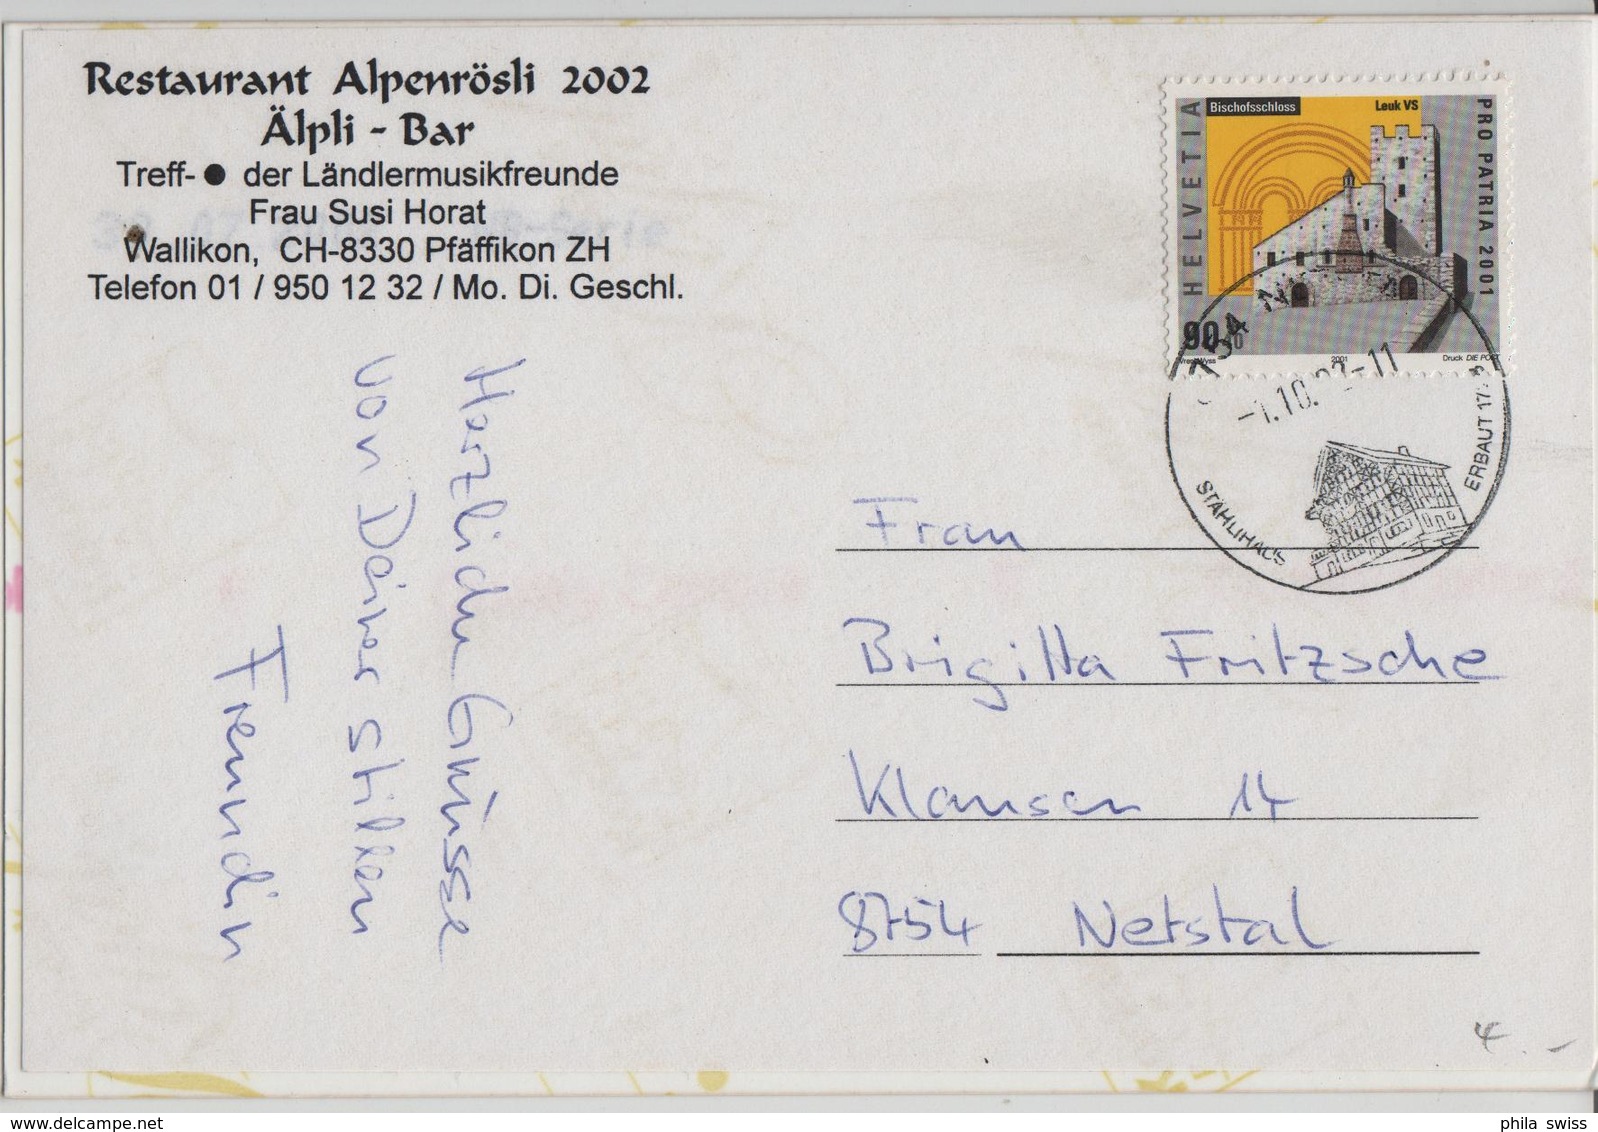 Restaurant Alpenrösli 2002
Älpli - Bar
Treff-● der Ländlermusikfreunde
Frau Susi Horat
Wallikon, CH-8330 Pfäffikon ZH
Telefon 01 / 950 12 32 / Mo. Di. Geschl.
Bischofsschloss
Leuk VS
HELVETIA
PRO PATRIA 2001
90
2001
Druck DIE POST
-1.10.02-11
STÄHLIHAUS
ERBAUT
Herzliche Grüsse
von Deiner stillen
Freundin
Frau
Brigitta Fritzsche
Klausen 14
8754 Netstal
4.-
phila swiss